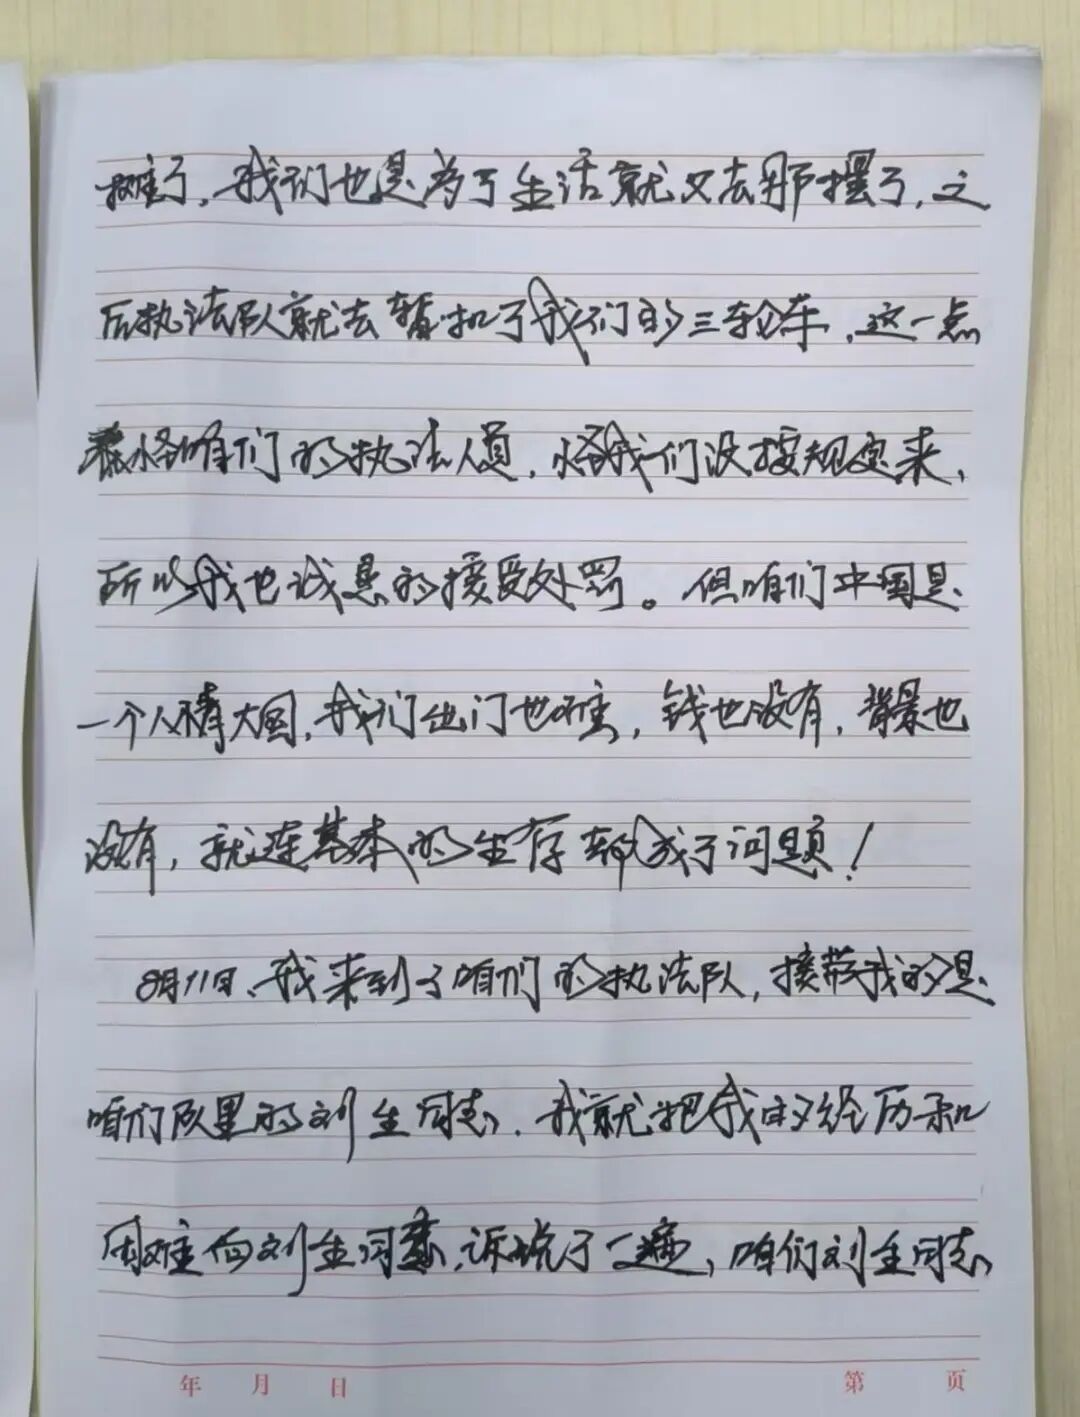 摊了，我们也是为了生活就又去那摆了，之
后执法队就去暂扣了我们的三轮车，这一点
怪咱们的执法人员，怪我们没按规定来，
所以我也诚恳的接受处罚。但咱们中国是
一个人情大国，我们出门也难，钱也没有，背景也
没有，就连基本的生存都成了问题！
8月11日、我来到了咱们的执法队，接待我的是
咱们队里的刘生同志，我就把我的经历和
困难向刘生同志，诉说了一遍，咱们刘生同志
年 月 日 第 页